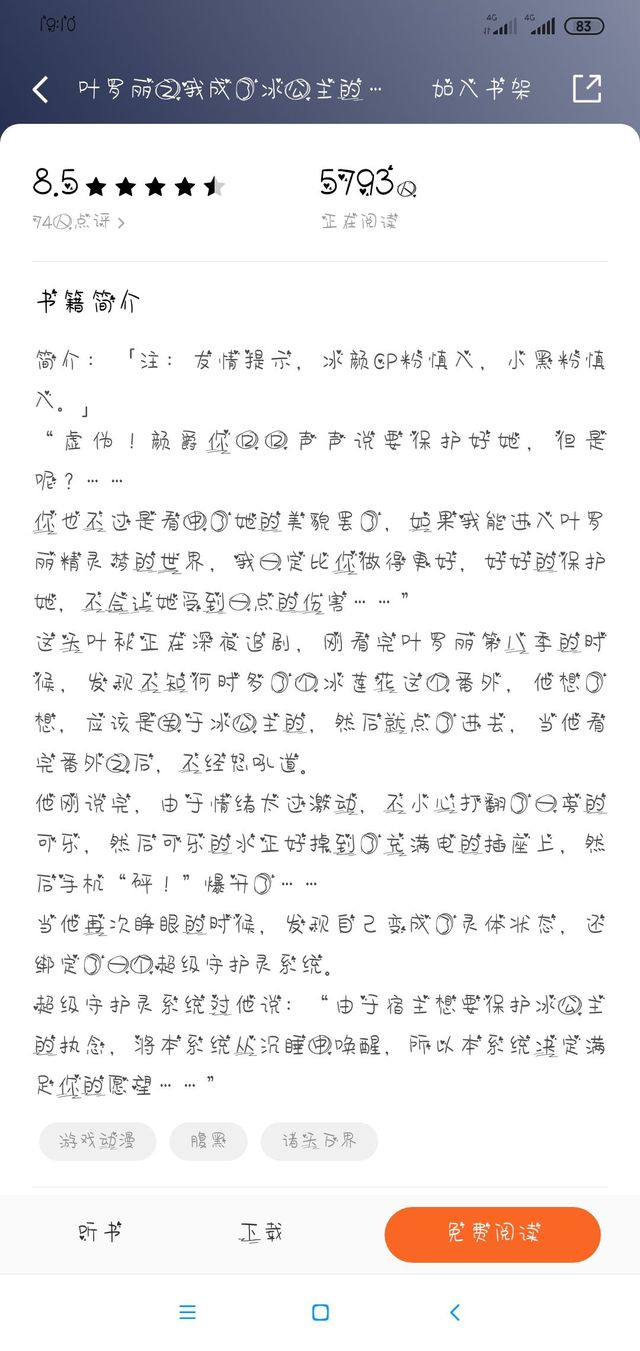 19:10
4G 4G 83
叶罗丽之我成了冰公主的… 加入书架
8.5 5793人
74人点评 > 正在阅读
书籍简介
简介：「注：友情提示，冰颜CP粉慎入，小黑粉慎
入。」
“虚伪！颜爵你口口声声说要保护好她，但是
呢？……
你也不过是看中了她的美貌罢了，如果我能进入叶罗
丽精灵梦的世界，我一定比你做得更好，好好的保护
她，不会让她受到一点的伤害……”
这头叶秋正在深夜追剧，刚看完叶罗丽第八季的时
候，发现不知何时多了个冰莲花这个番外，他想了
想，应该是关于冰公主的，然后就点了进去，当他看
完番外之后，不经怒吼道。
他刚说完，由于情绪太过激动，不小心打翻了一旁的
可乐，然后可乐的水正好掉到了充满电的插座上，然
后手机“砰！”爆开了……
当他再次睁眼的时候，发现自己变成了灵体状态，还
绑定了一个超级守护灵系统。
超级守护灵系统对他说：“由于宿主想要保护冰公主
的执念，将本系统从沉睡中唤醒，所以本系统决定满
足你的愿望……”
游戏动漫 腹黑 诸天万界
听书 下载 免费阅读